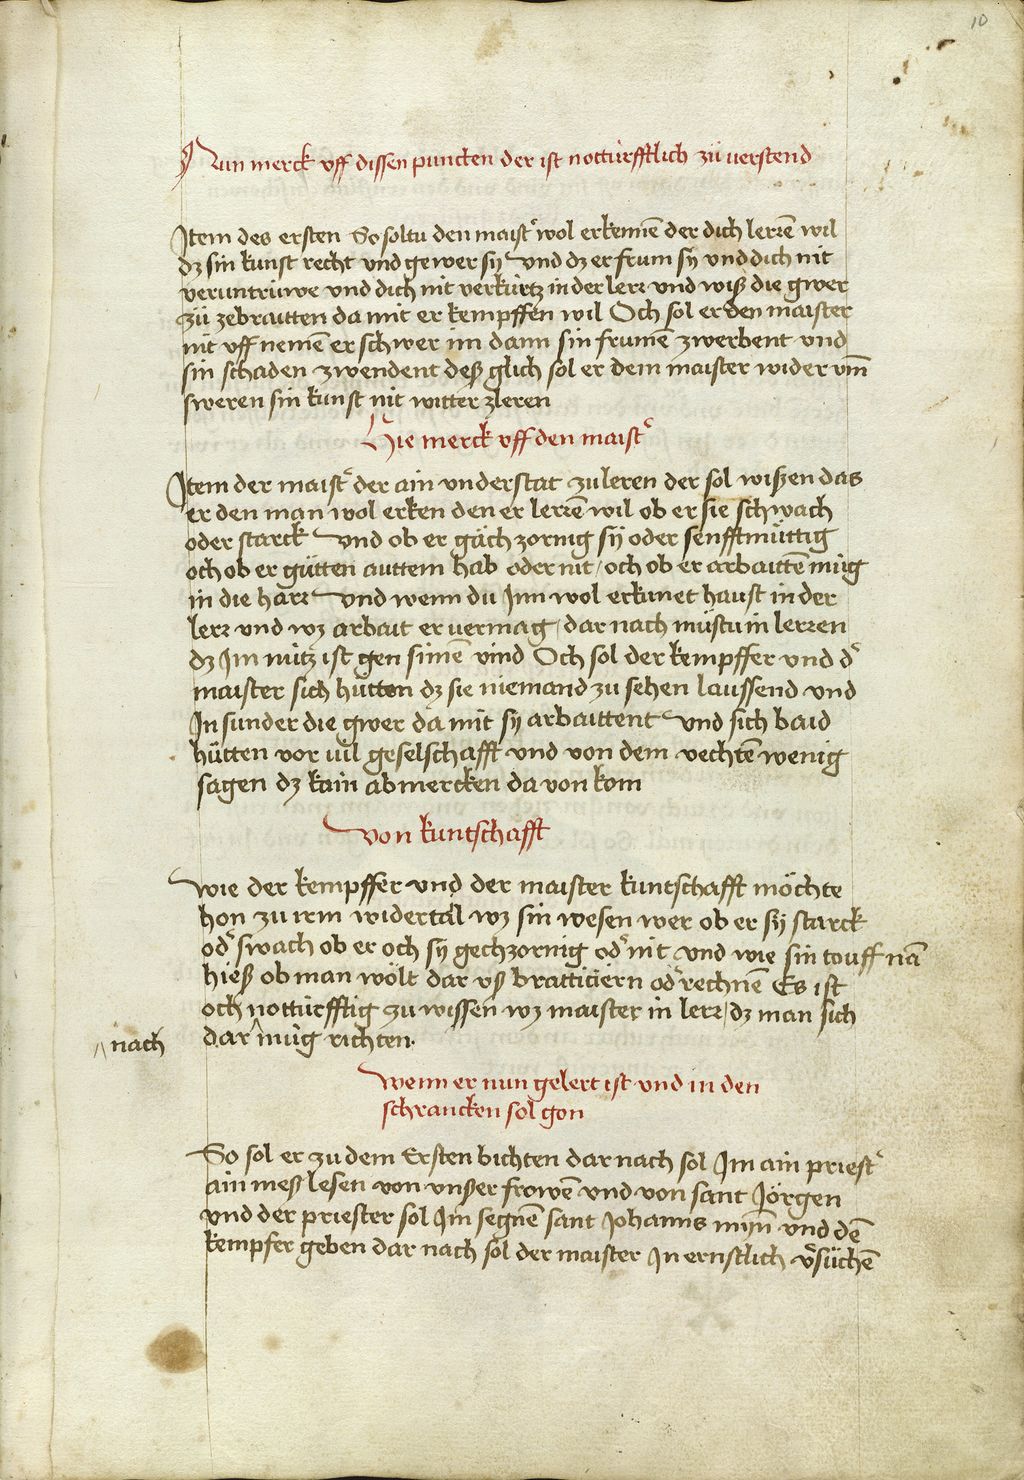 10
Nun merck vff dissen puncten der ist notturfftlich zü uerstend
Item des ersten So soltu den maist͛ wol erkenne͂ der dich lerre͂ wil
dz sin kunst recht vnd gewer sÿ vnd dz er frum sÿ vnd dich nit
veruntrüwe vnd dich nit verkürtz in der lerr vnd wiß die gwer
zü zebraitten da mit er kempffen wil Och sol er den maister
nit vff neme͂ er schwer im dann sin frume͂ zwerbent vnd
sin schaden zwendent deß glich sol er dem maister wider vm͂
sweren sin kunst nit witter zleren
Hie merck vff den maist͛
Item der maist͛ der ain vnderstat zu leren der sol wißen das
er den man wol erken den er lerre͂ wil ob er sie schwach
oder starck vnd ob er gäch zornig sÿ oder senfftmüttig
och ob er gütten auttem hab oder nit / och ob er arbaitte͂ müg
in die harr vnd wenn du Inn wol erkunet haust in der
lerr vnd wz arbait er uermag / dar nach müstu in lerren
dz Im nütz ist gen sine͂ vind Och sol der kempffer vnd d͛
maister sich hütten dz sie niemand zu sehen laussend vnd
In sunder die gwer da mit sÿ arbaittent vnd sich baid
hütten vor uil geselschafft vnd von dem vechte͂ wenig
sagen dz kain abmercken da von kom
von kuntschafft
wie der kempffer vnd der maister kuntschafft möchte
hon zu irm widertäl wz sin wesen wer ob er sÿ starck
od͛ swach ob er och sÿ gechzornig od͛ nit vnd wie sin touff na͂
hieß ob man wölt dar vß bratticiern od͛ rechne͂ Es ist
och notturfftig zu wissen wz maister in lerr / dz man sich
^ nach
dar ^ müg richten·
wenn er nun gelert ist vnd in den
schrancken sol gon
So sol er zu dem Ersten bichten dar nach sol Im ain priest͛
ain meß lesen von vnßer frowe͂ vnd von sant Jörgen
vnd der priester sol Im segne͂ sant Johanns myn͂ vnd de͂
kempfer geben dar nach sol der maister In ernstlich v͛süche͂